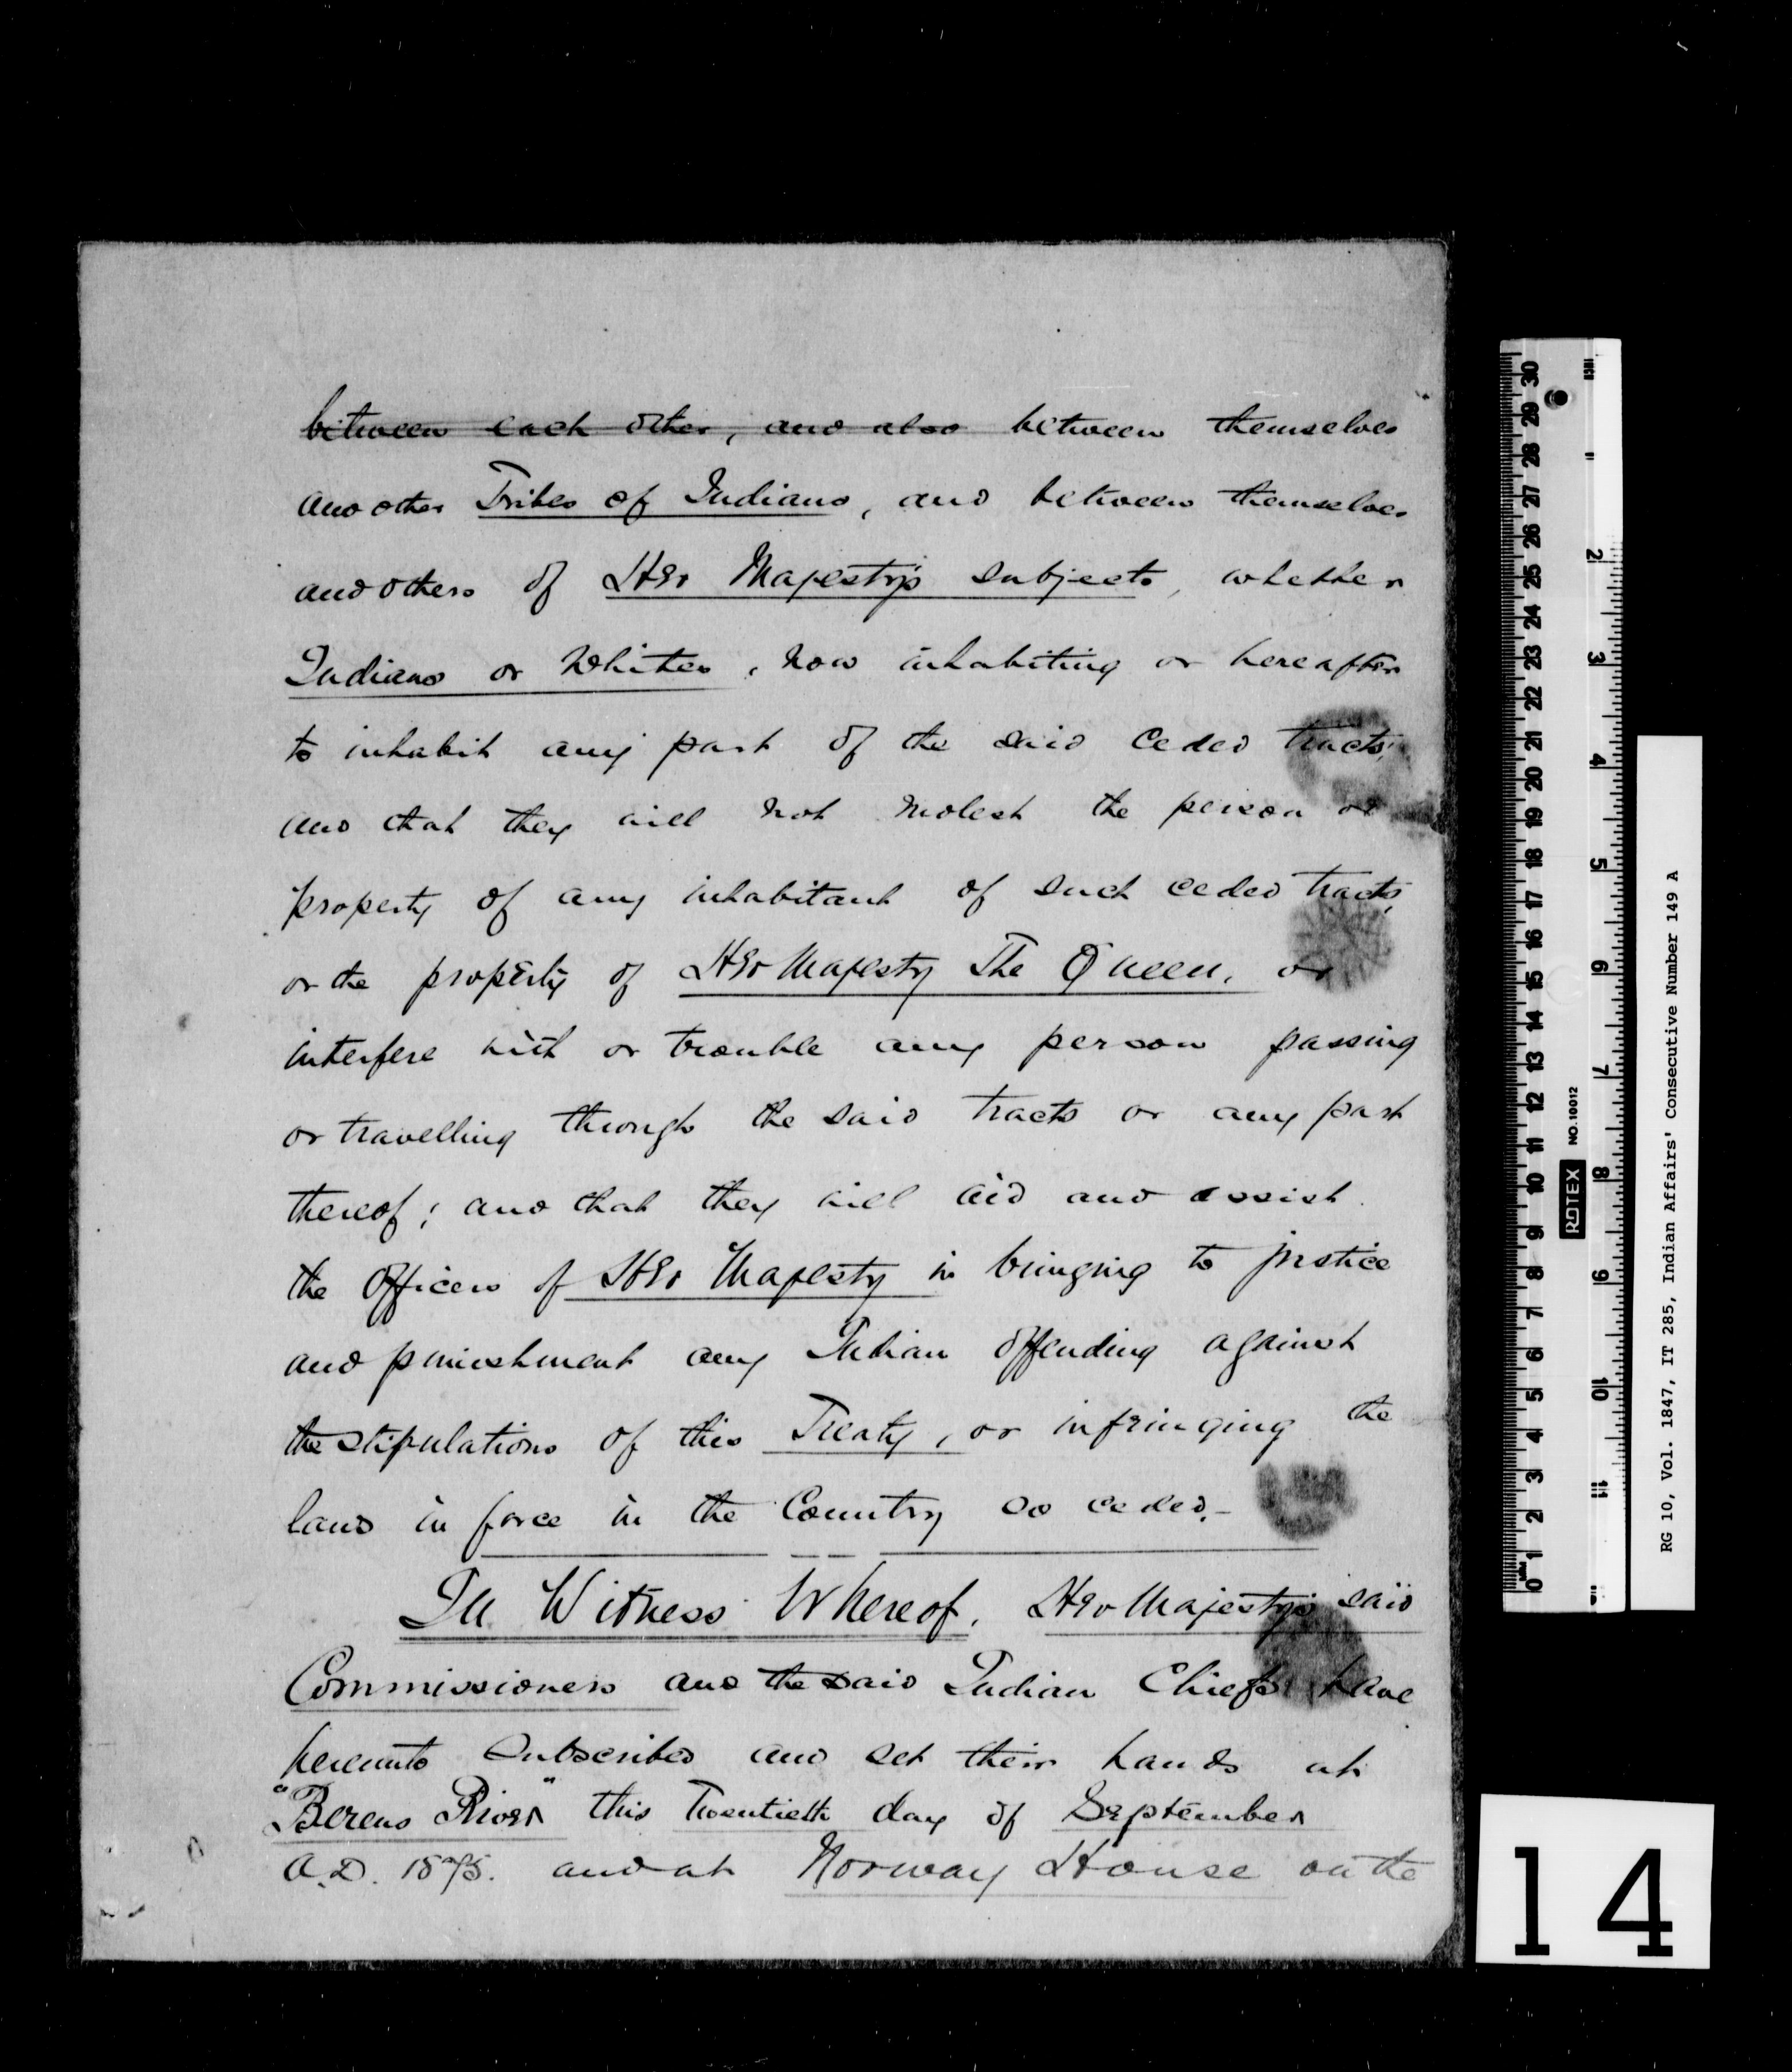 between each other, and also between themselves
and other Tribes of Indians, and between themselves
and others of Her Majesty's subjects, whether
Indians or Whites, now inhabiting or hereafter
to inhabit any part of the said ceded tracts;
and that they will not molest the person or
property of any inhabitant of such ceded tracts,
or the property of Her Majesty The Queen, or
interfere with or trouble any person passing
or travelling through the said tracts or any part
thereof; and that they will aid and assist
the Officers of Her Majesty in bringing to justice
and punishment any Indian offending against
the stipulations of this Treaty, or infringing the
laws in force in the Country so ceded.-
In Witness Whereof. Her Majesty's said
Commissioners and the said Indian Chiefs have
hereunto subscribed and set their hands at
"Berens River" this Twentieth day of September
A.D. 1875. and at Norway House on the
ROTEX NO. 10012
RG 10, Vol. 1847, IT 285, Indian Affairs' Consecutive Number 149 A
14